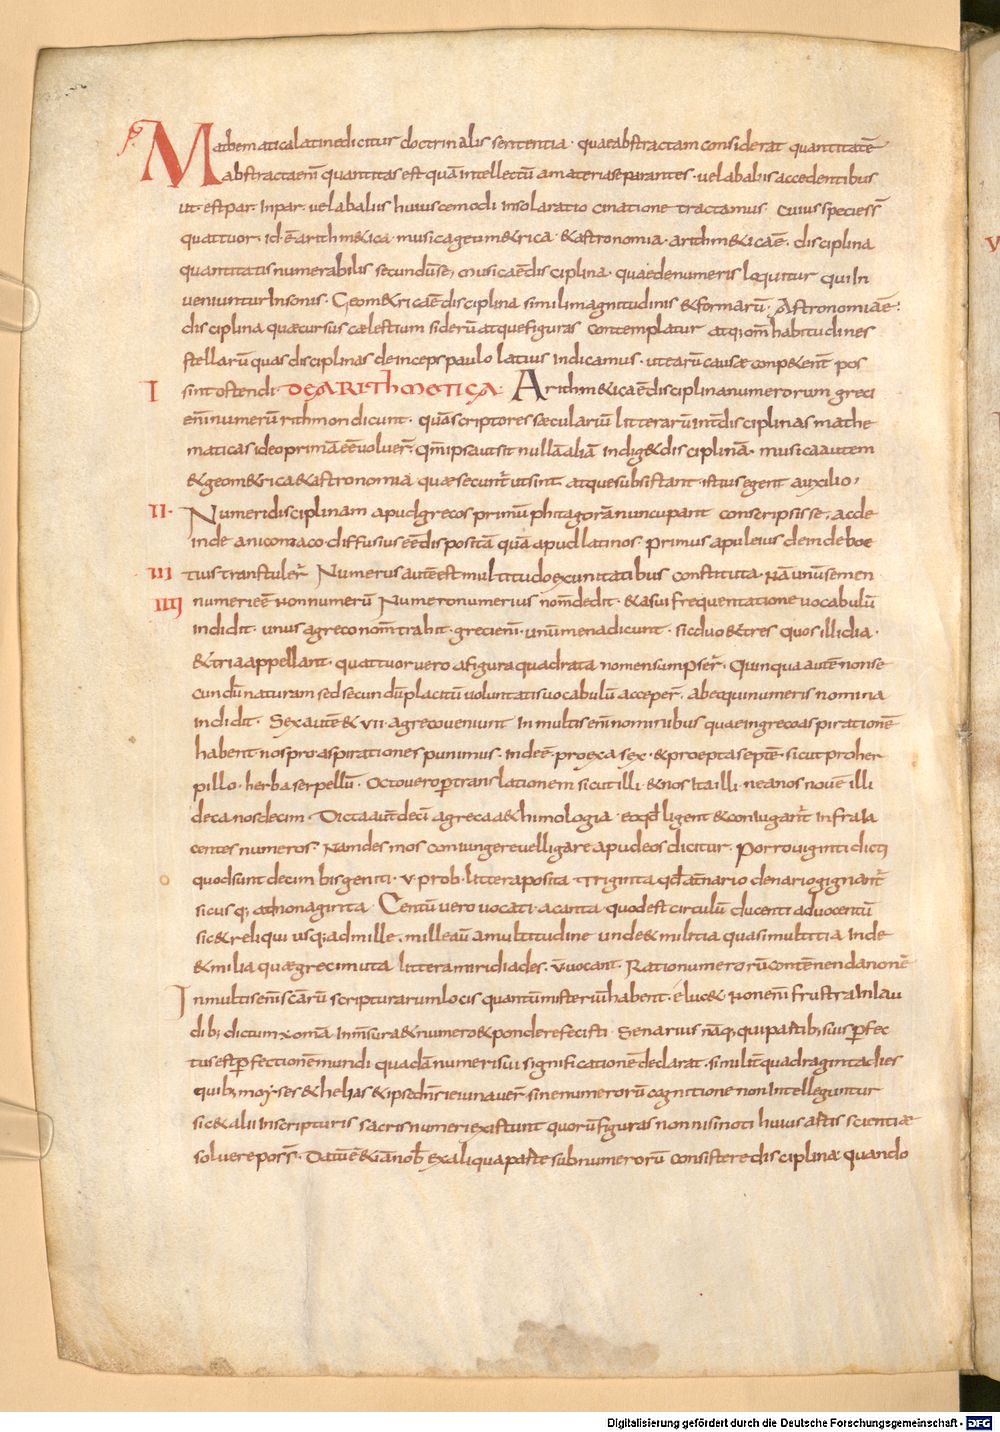 Mathematica latine dicitur doctrinalis sententia · quae abstractam considerat quantitatē
abstracta eni̅ quantitas est quā intellectū a materia separantes · vel ab aliis accedentibus
ut · est par · inpar · vel ab aliis huiuscemodi in sola ratiocinatione tractamus · cuius species s̅
quattuor · id · ē arithm&ica · musica geum&rica · &astronomia · arithm&ica ē · disciplina
quantitatis numerabilis secundū se, musica ē disciplina · quae de numeris loquitur qui in
veniuntur in sonis · Geom&rica ē disciplina simili magnitudinis & formarū · Astronomia ē ·
disciplina quæ cursus cælestium siderū atque figuras contemplatur atq; om̅ habitudines
stellarū quas disciplinas deinceps paulo latius indicamus · ut earū causæ conp&ent pos
I sint ostendi · DE ARITHMETICA · Arithm&ica ē disciplina numerorum greci
eni̅ numerū rithmon dicunt · quā scriptores sæculariū litterarū int̅ disciplinas mathe
maticas ideo primā ee̅ voluer̅ · qm̅ ipsa ut sit nullā aliā indig& disciplinā · musica autem
& geom&rica & astronomia quæ secunt̅ ut sint atque subsistant istius egent auxilio,
II · Numeri disciplinam apud grecos primū phitagorā nuncupant conscripsisse, ac de
inde a nicomaco · diffusius ee̅ dispositā quā apud latinos · primus apuleius deinde boe
III tius transtuler̅ Numerus autē est multitudo ex unitatibus constituta · nā unū semen
IIII numeri eē non numerū Numero numerius nom̅ dedit · & a sui frequentatione vocabulū
indidit · unus a greco nom̅ trahit · greci eni̅ · unū mena dicunt · sic duo & tres quos illi dia ·
& tria appellant · quattuor vero a figura quadrata nomen sumpser̅ · Quinque autē non se
cundū naturam sed secundū placitū voluntatis vocabulū acceper̅ · ab eo qui numeris nomina
indidit · Sex autē & VII · a greco veniunt in multis eni̅ nominibus quae in greco aspirationē
habent nos pro aspirationes punimus · inde ē · pro exa sex · & pro epta septē · sicut pro her
pillo · herba serpellū · Octo vero p̅ translationem sicut illi · & nos ita illi · nea nos novē illi
deca nos decim · Dicta aut̅ deci̅ a greca & himologia · eo qd̅ ligent & coniugant̅ infra ia
centes numeros · Nam des mos coniungere vel ligare apud eos dicitur · Porro viginti dicti
quod sunt decim bis geniti · v · pro b · littera posita Triginta qd̅ a t̅nario denario gignant̅
sicusq; ad nonaginta · Centū vero vocati · a canta quod est circulū ducenti a duo centū
sic & reliqui usq; ad mille · mille aū a multitudine unde & militia quasi multitia inde
& milia quæ greci muta littera miriades · vocant · Ratio numerorū contēnenda non ē
In multis eni̅ scārū scripturarum locis quantū misteriū habent · eluc& · Non eni̅ frustra in lau
dib; di dictum ē omā in m̅sura & numero & pondere fecisti · Senarius nāq; qui partib; suis p̅fec
tus est p̅fectionē mundi quadā numeri sui significatione declarat · similit̅ quadraginta dies
quib; moyses & helias & ipse dn̅s ieiunaver̅ · sine numerorū cognitione non intelleguntur
sic & alii in scripturis sacris numeri existunt quorū figuras non nisi noti huius artis scientiæ
solvere pors̅ · Datū ē &iā nob̅ ex aliqua parte sub numerorū consistere disciplina · quando
Digitalisierung gefördert durch die Deutsche Forschungsgemeinschaft - DFG